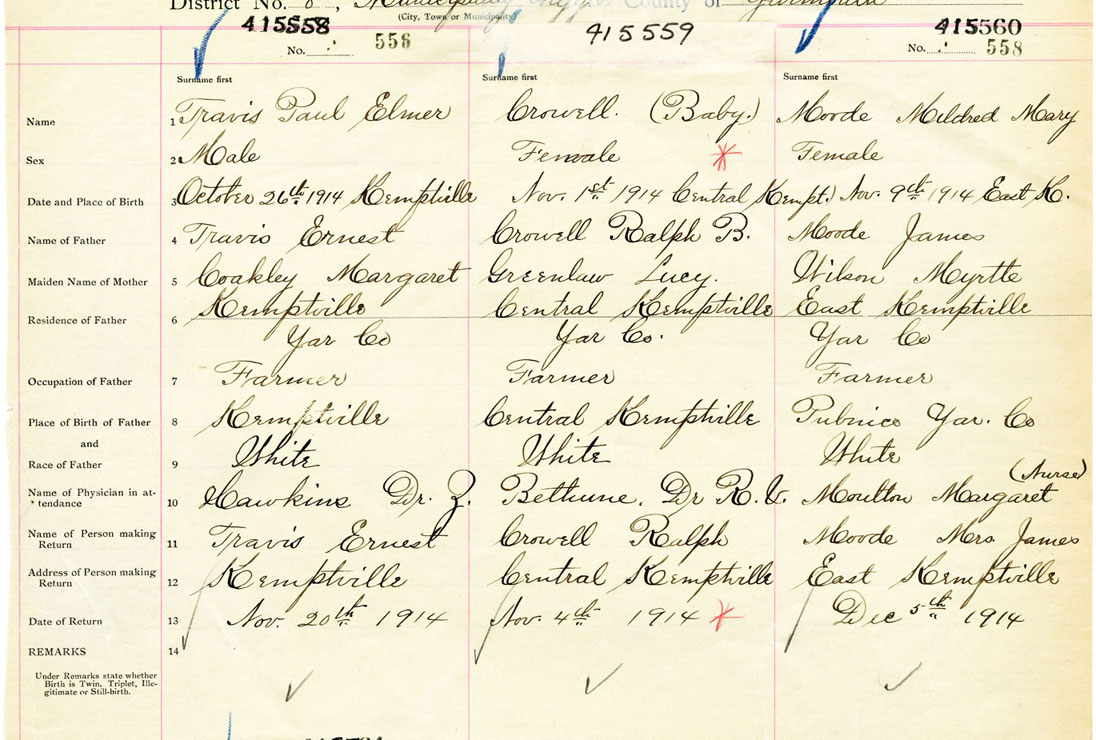 District No. 8, Municipality County of Yarmouth
(City, Town or Municipality)
415558 415559 415560
No. 556 No. 558
Surname first Surname first Surname first
Name 1 Travis Paul Elmer Crowell. (Baby.) Moode Mildred Mary
Sex 2 Male Female * Female
Date and Place of Birth 3 October 26th 1914 Kemptville Nov. 1st 1914 Central Kempt.) Nov. 9th 1914 East K.
Name of Father 4 Travis Ernest Crowell Ralph B. Moode James
Maiden Name of Mother 5 Coakley Margaret Greenlaw Lucy. Wilson Myrtle
Residence of Father 6 Kemptville Central Kemptville East Kemptville
Yar Co Yar Co. Yar Co
Occupation of Father 7 Farmer Farmer Farmer
Place of Birth of Father 8 Kemptville Central Kemptville Pubnico Yar. Co
and
Race of Father 9 White White White
(Nurse)
Name of Physician in at-
* tendance 10 Hawkins Dr. Z. Bethune. Dr R. Moulton Margaret
Name of Person making
Return 11 Travis Ernest Crowell Ralph Moode Mrs James
Address of Person making
Return 12 Kemptville Central Kemptville East Kemptville
Date of Return 13 Nov. 20th 1914 Nov. 4th 1914 * Dec 5th 1914
REMARKS 14
Under Remarks state whether
Birth is Twin, Triplet, Ille-
gitimate or Still-birth.